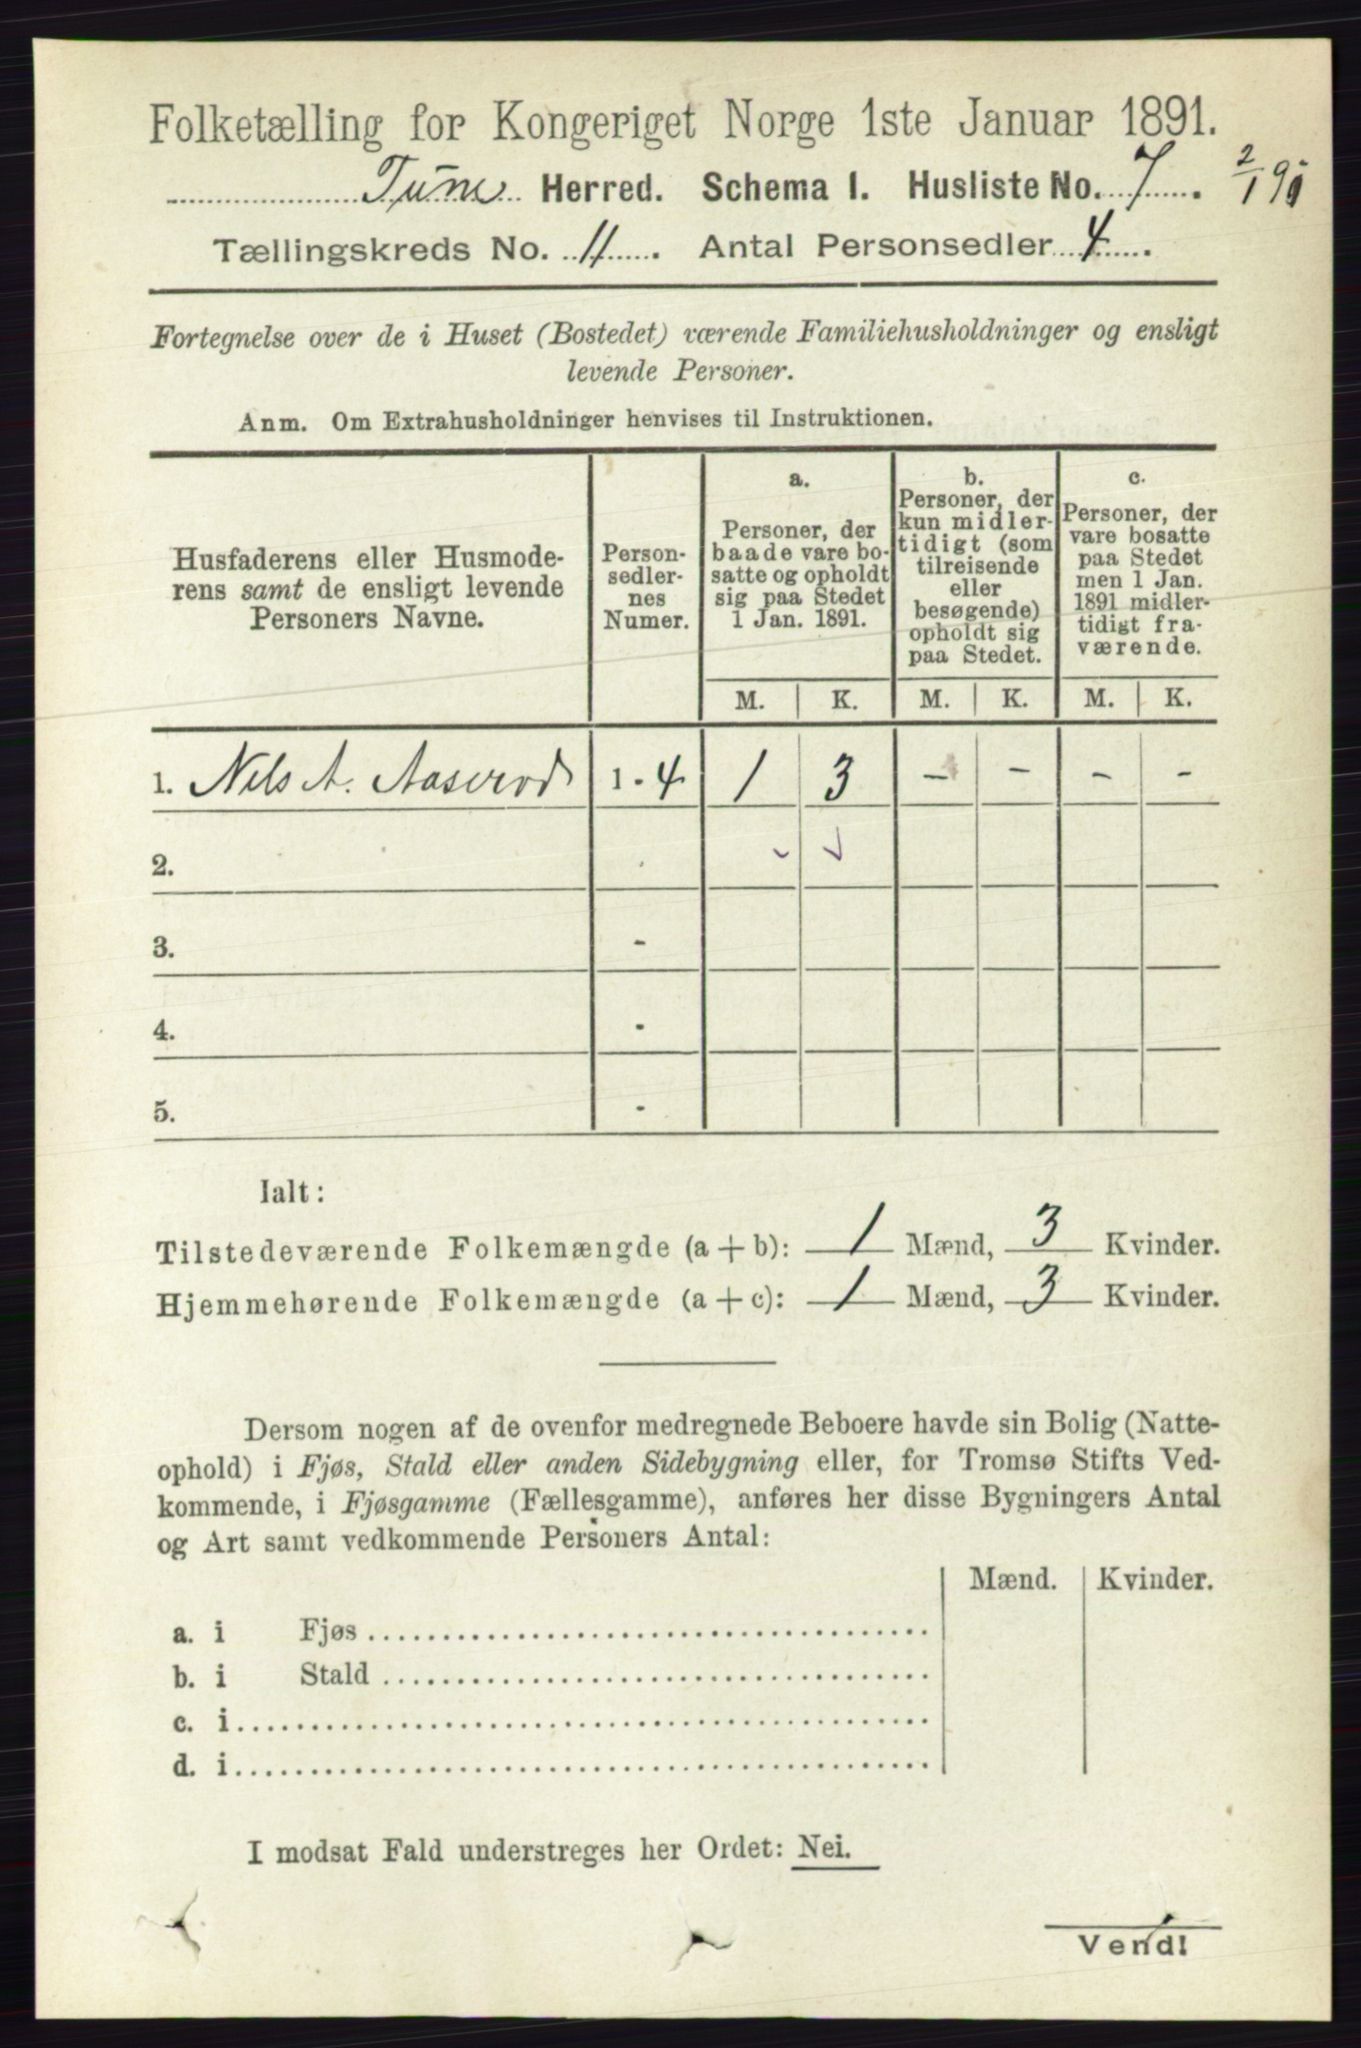 Folketælling for Kongeriget Norge 1ste Januar 1891.
Tune Herred. Schema I. Husliste No. 7. 2/1 91
Tællingskreds No. 11. Antal Personsedler 4.
Fortegnelse over de i Huset (Bostedet) værende Familiehusholdninger og ensligt
levende Personer.
Anm. Om Extrahusholdninger henvises til Instruktionen.
Husfaderens eller Husmode-
rens samt de ensligt levende
Personers Navne.
Person-
sedler-
nes
Numer.
a.
Personer, der
baade vare bo-
satte og opholdt
sig paa Stedet
1 Jan. 1891.
b.
Personer, der
kun midler-
tidigt (som
tilreisende
eller
besøgende)
opholdt sig
paa Stedet.
c.
Personer, der
vare bosatte
paa Stedet
men 1 Jan.
1891 midler-
tidigt fra-
værende.
M. K. M. K. M. K.
1. Nils A. Aaserød 1 - 4 1 3 - - - -
2. -
3. -
4. -
5. -
Ialt:
Tilstedeværende Folkemængde (a + b): 1 Mænd, 3 Kvinder.
Hjemmehørende Folkemængde (a + c): 1 Mænd, 3 Kvinder.
Dersom nogen af de ovenfor medregnede Beboere havde sin Bolig (Natte-
ophold) i Fjøs, Stald eller anden Sidebygning eller, for Tromsø Stifts Ved-
kommende, i Fjøsgamme (Fællesgamme), anføres her disse Bygningers Antal
og Art samt vedkommende Personers Antal:
Mænd. Kvinder.
a. i Fjøs
b. i Stald
c. i
d. i
I modsat Fald understreges her Ordet: Nei.
Vend!